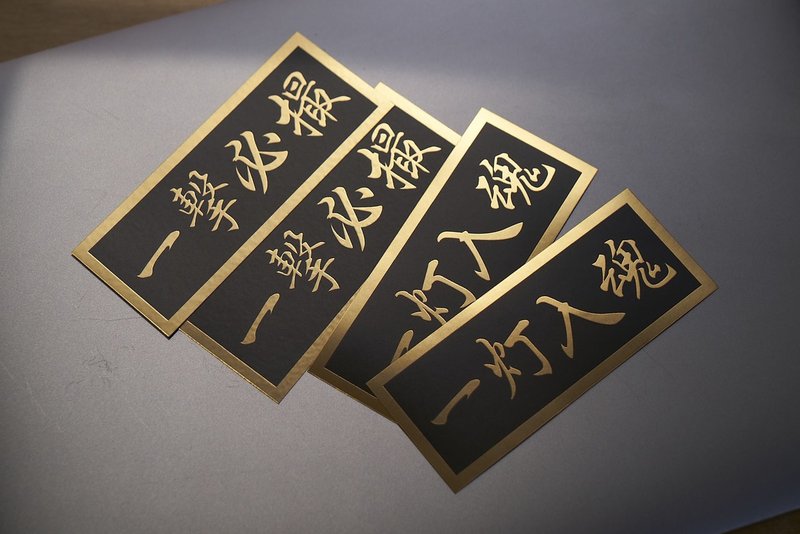 一撃必撮
一撃必撮
一灯入魂
一灯入魂